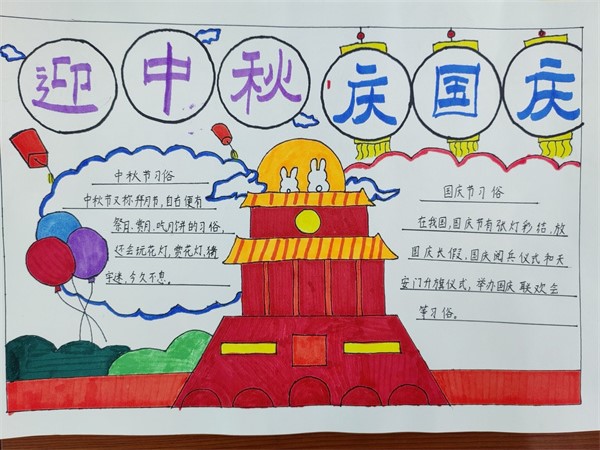 迎中秋 庆国庆
中秋节习俗
中秋节又称拜月节,自古便有
祭月、赏月、吃月饼的习俗,
还会玩花灯,赏花灯,猜
字迷,今久不息。
国庆节习俗
在我国,国庆节有张灯彩结,放
国庆长假,国庆阅兵仪式和天
安门升旗仪式,举办国庆联欢会
等习俗。